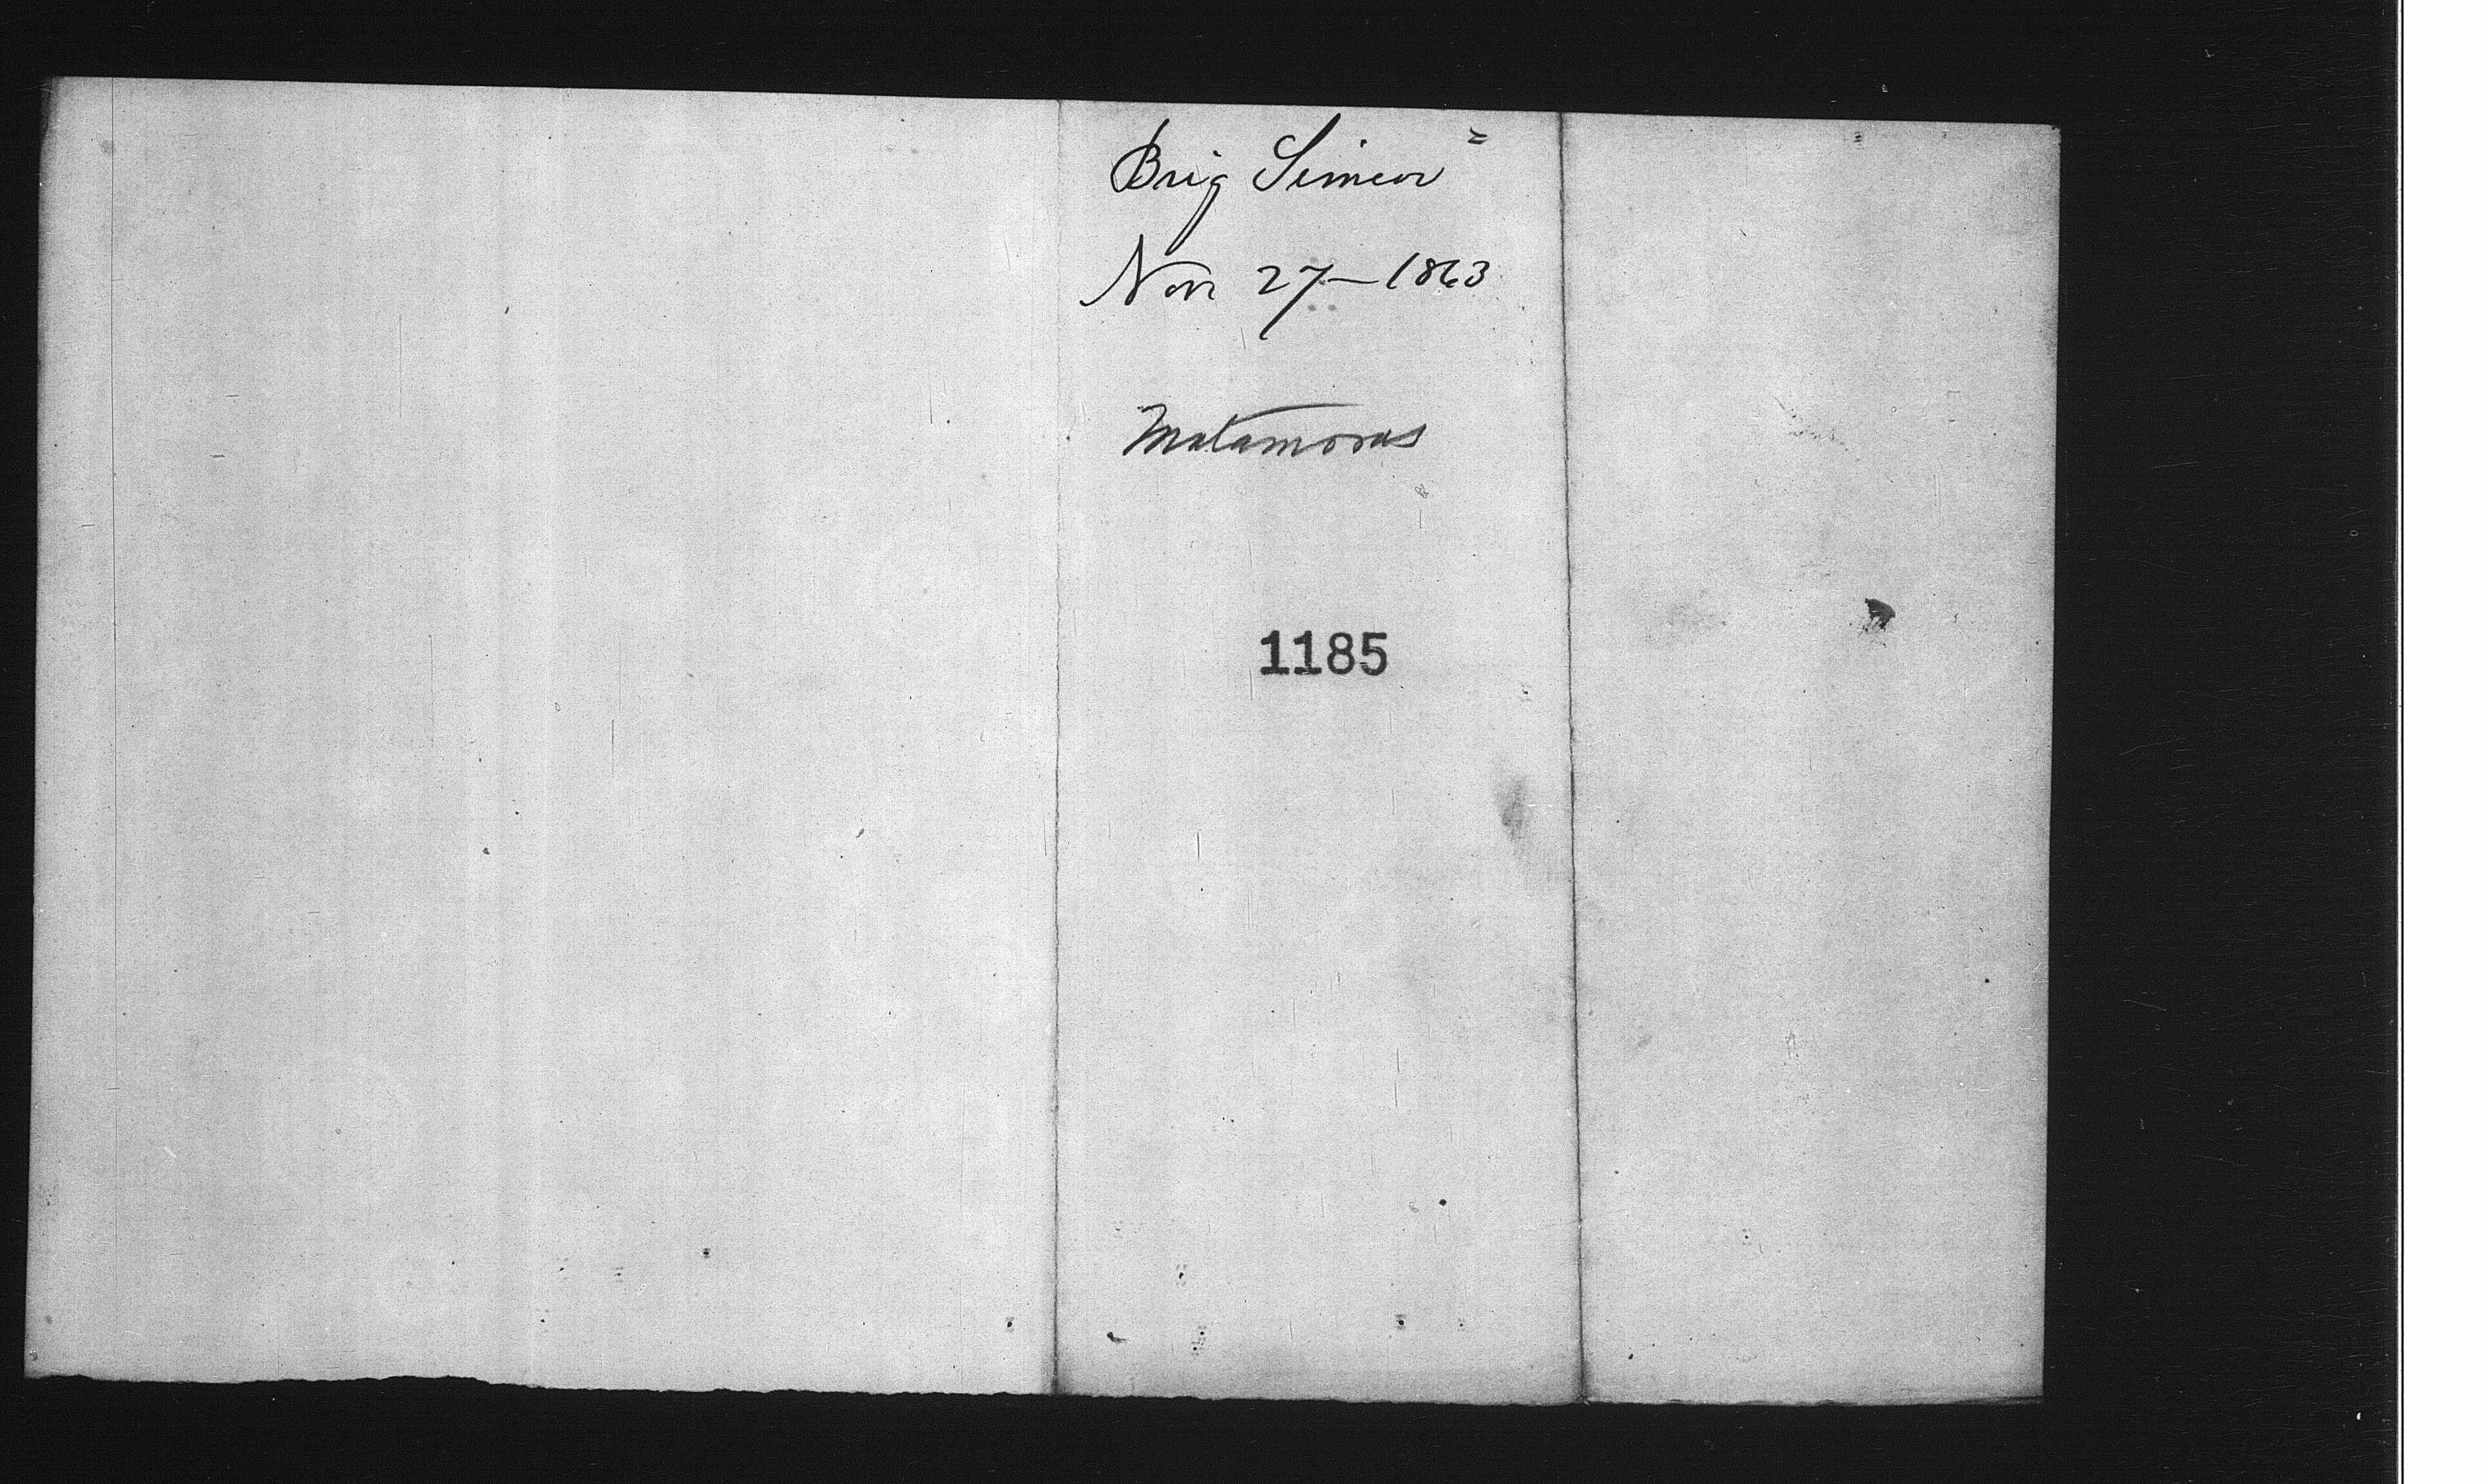 Brig Simeon
Nov 27—1863
Matamoras
1185